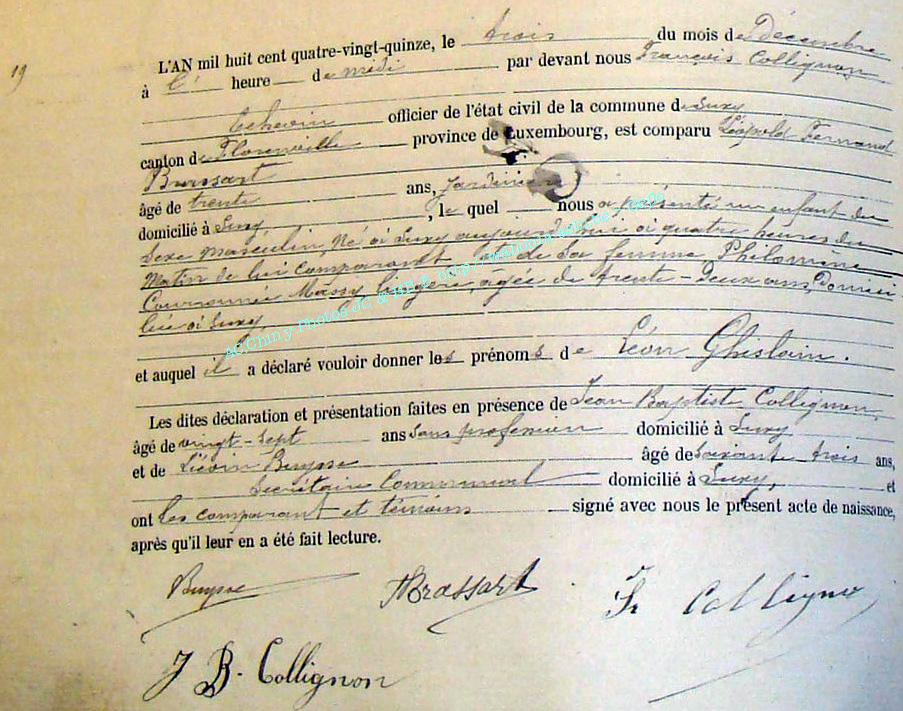 19
L'AN mil huit cent quatre-vingt-quinze, le trois du mois de Décembre
à l' heure de midi par devant nous François Collignon,
Echevin officier de l'état civil de la commune de Suxy
canton de Florenville province de Luxembourg, est comparu Léopold Fernand
Brassart
âgé de trente ans, Jardinier
domicilié à Suxy, , le quel nous a présenté un enfant du
Sexe masculin, Né à Suxy aujourd'hui à quatre heures du
Matin de lui comparant et de Sa femme Philomène
Couronnée Massy, lingère, âgée de trente-Deux ans, Domici-
liée à Suxy,
et auquel il a déclaré vouloir donner les prénoms de Léon Ghislain.
Les dites déclaration et présentation faites en présence de Jean Baptiste Collignon,
âgé de vingt-sept ans Sans profession domicilié à Suxy
et de Liévin Buysse âgé de Soixante trois ans,
Secrétaire Communal domicilié à Suxy, et
ont les comparant et témoins signé avec nous le présent acte de naissance,
après qu'il leur en a été fait lecture.
Buysse Brassart Fr Collignon
J B. Collignon
AC Chiny Photos JC &